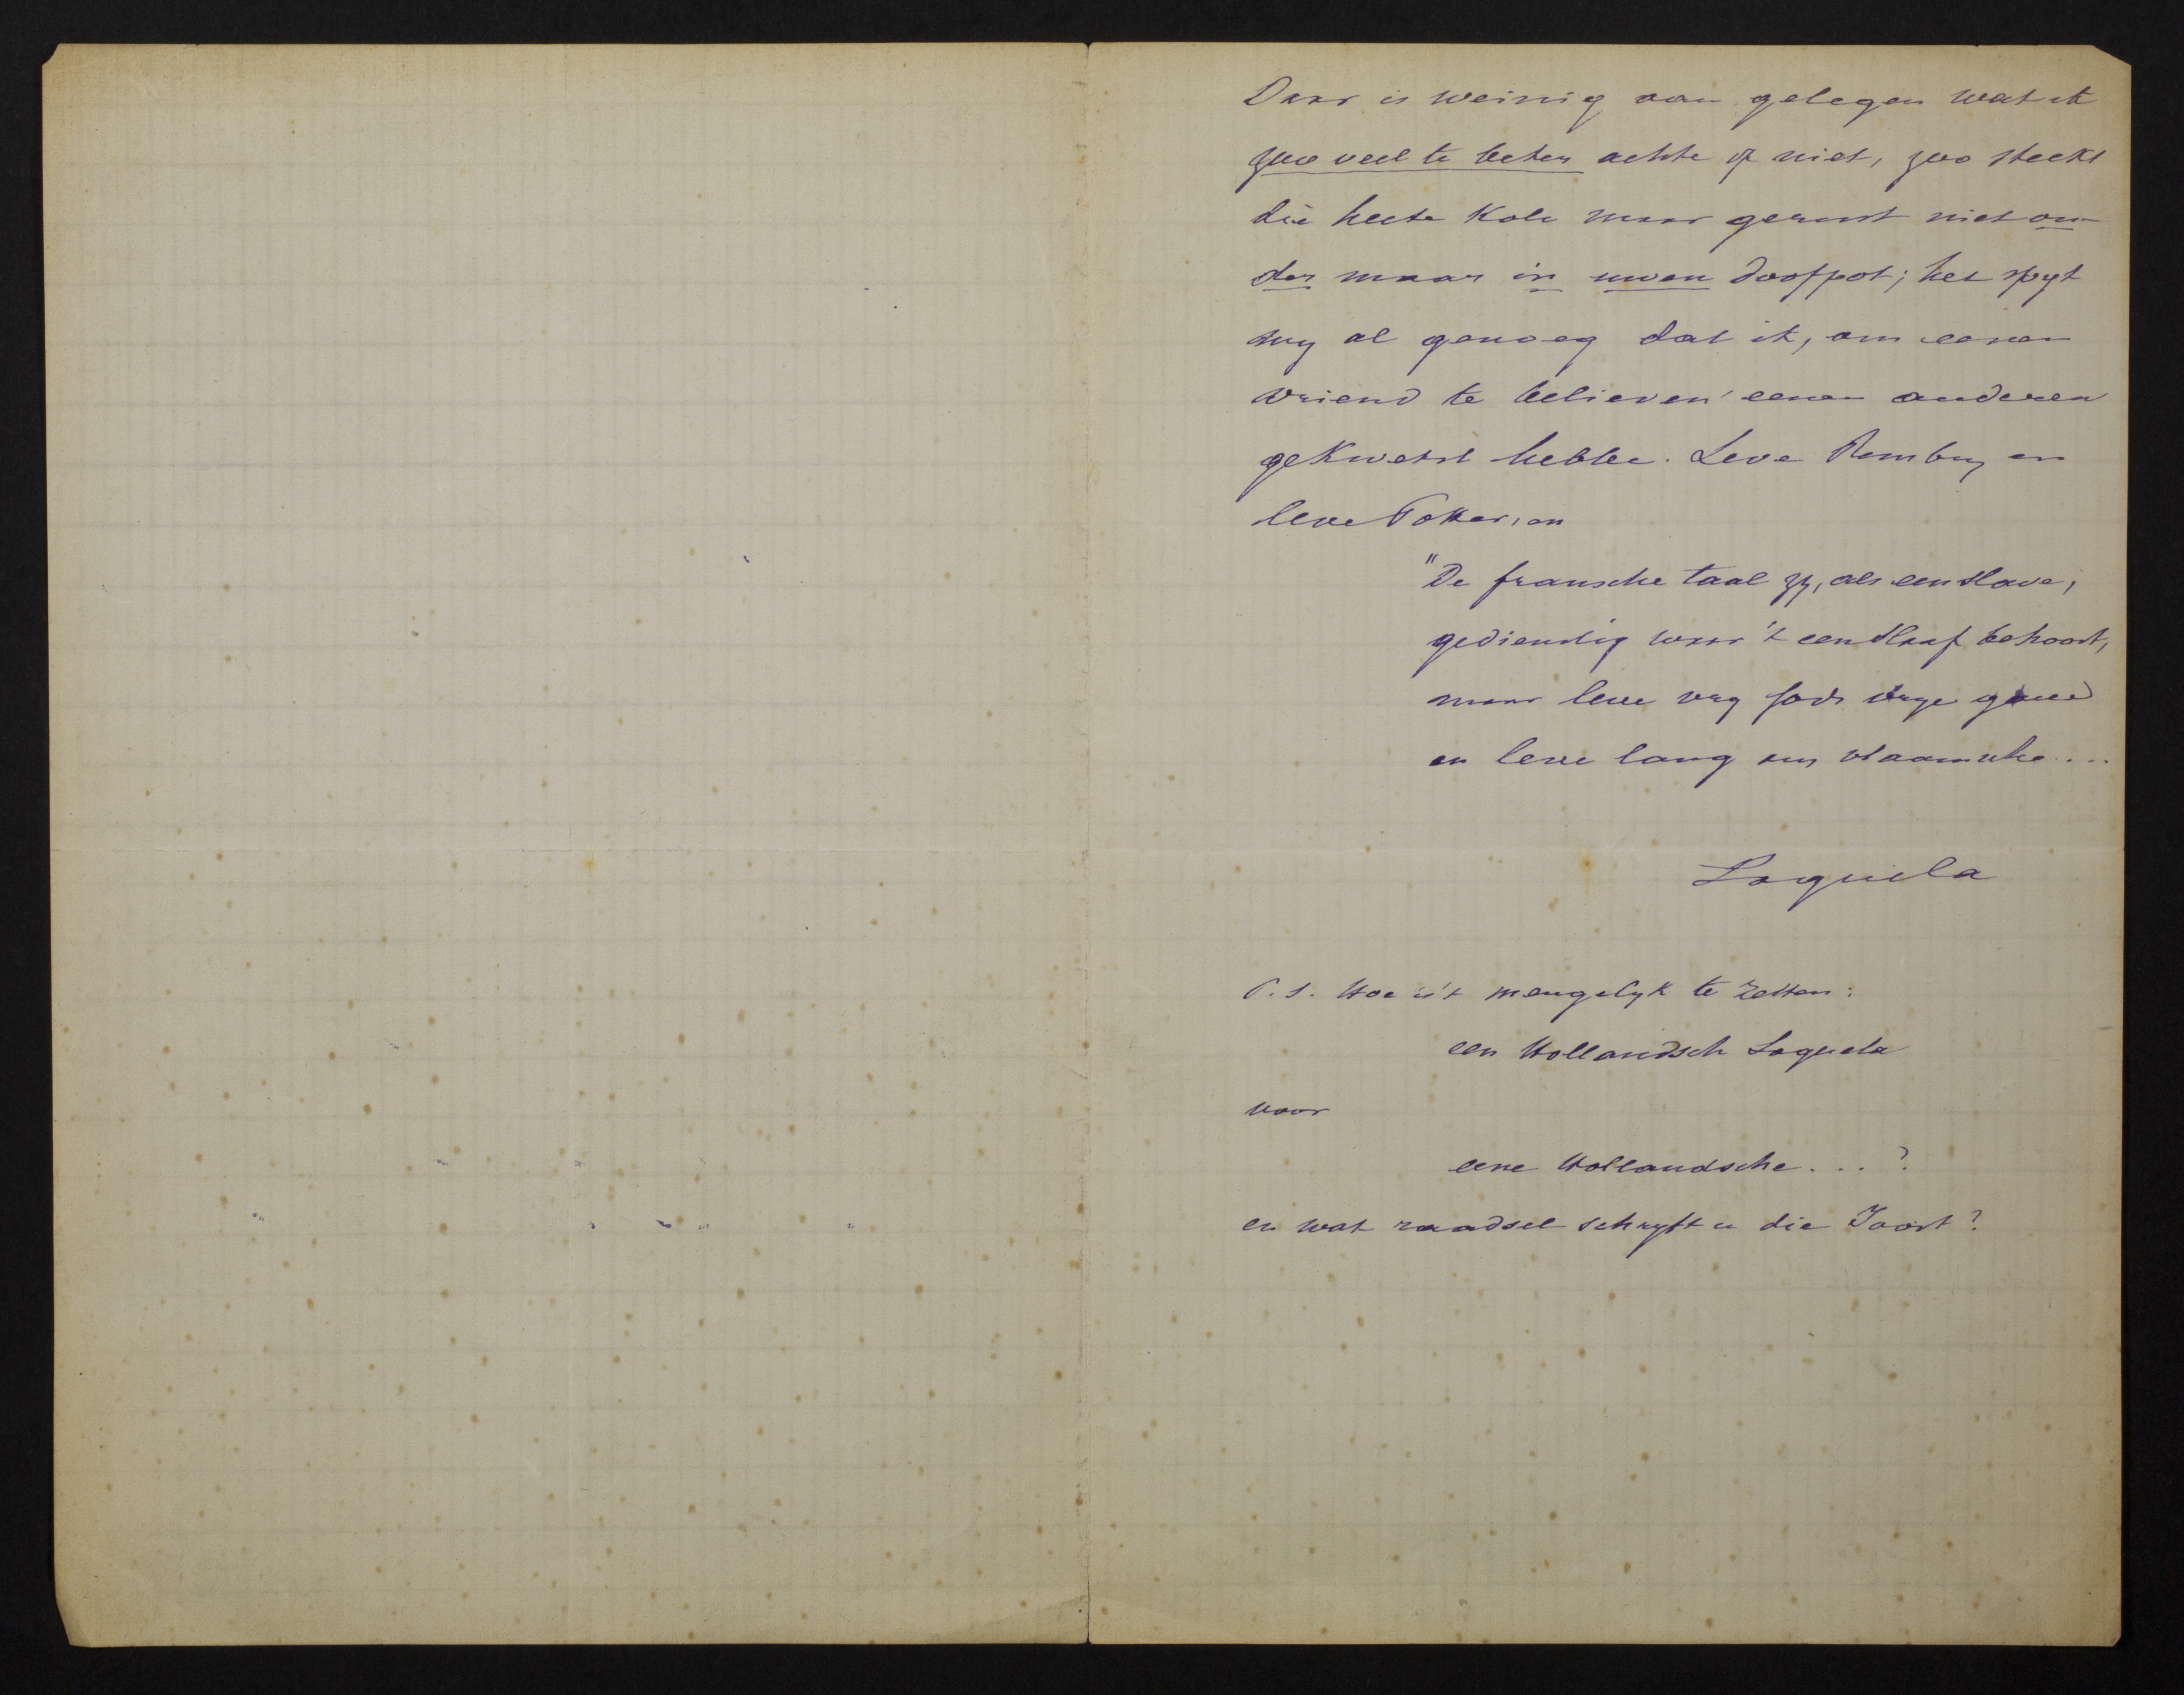 Daar is weinig aan gelegen wat ik
zoo veel te beter achte of niet, zoo steekt
die heete kole maar gerust niet on-
der maar in uwen doofpot; het spyt
my al genoeg dat ik, om eenen
vriend te believen eenen anderen
gekwetst hebbe. Leve Rembry en
leve Potter, en
"De fransche taal zy, als een slave,
gedienstig waar 't een slaaf behoort,
maar leve vry Gods vrye gave
en leve lang ons vlaamsche...
Loquela
P.S. Hoe is 't meugelyk te zetten:
een Hollandsch Loquela
voor
eene Hollandsche...?
en wat raadsel schryft u die Joost?